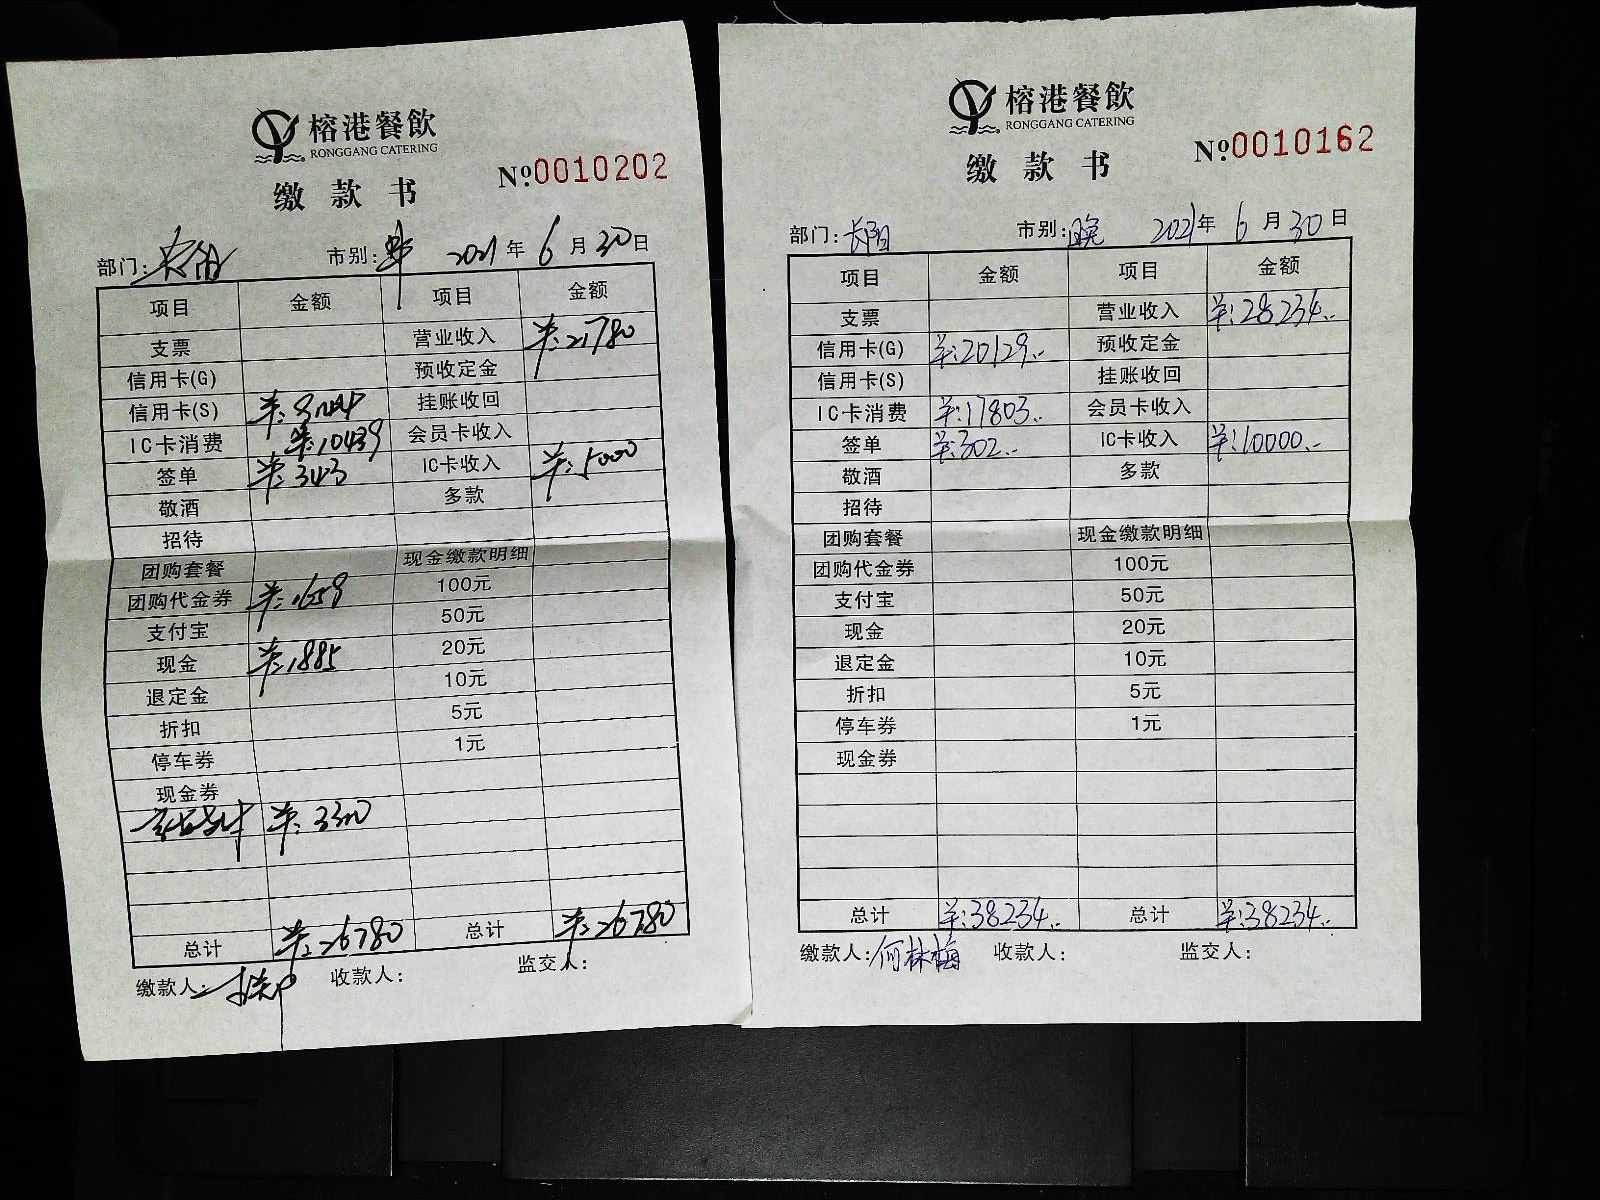 榕港餐飲
RONGGANG CATERING
缴款书
№0010202
部门: 市别: 2021年6月30日
项目 金额 项目 金额
支票 营业收入 羊:21780
信用卡(G) 预收定金
信用卡(S) 羊: 挂账收回
IC卡消费 羊:10439 会员卡收入
签单 羊:343 IC卡收入 羊:5000
敬酒 多款
招待
团购套餐 现金缴款明细
团购代金券 羊:1659 100元
支付宝 50元
现金 羊:1885 20元
退定金 10元
折扣 5元
停车券 1元
现金券
羊:3300
总计 羊:26780 总计 羊:26780
缴款人: 收款人: 监交人:
榕港餐飲
RONGGANG CATERING
缴款书
№0010162
部门:长阳 市别:晚 2021年6月30日
项目 金额 项目 金额
支票 营业收入 羊:28234..
信用卡(G) 羊:20129.- 预收定金
信用卡(S) 挂账收回
IC卡消费 羊:17803.. 会员卡收入
签单 羊:302.- IC卡收入 羊:10000.-
敬酒 多款
招待
团购套餐 现金缴款明细
团购代金券 100元
支付宝 50元
现金 20元
退定金 10元
折扣 5元
停车券 1元
现金券
总计 羊:38234.. 总计 羊:38234..
缴款人:何林梅 收款人: 监交人: